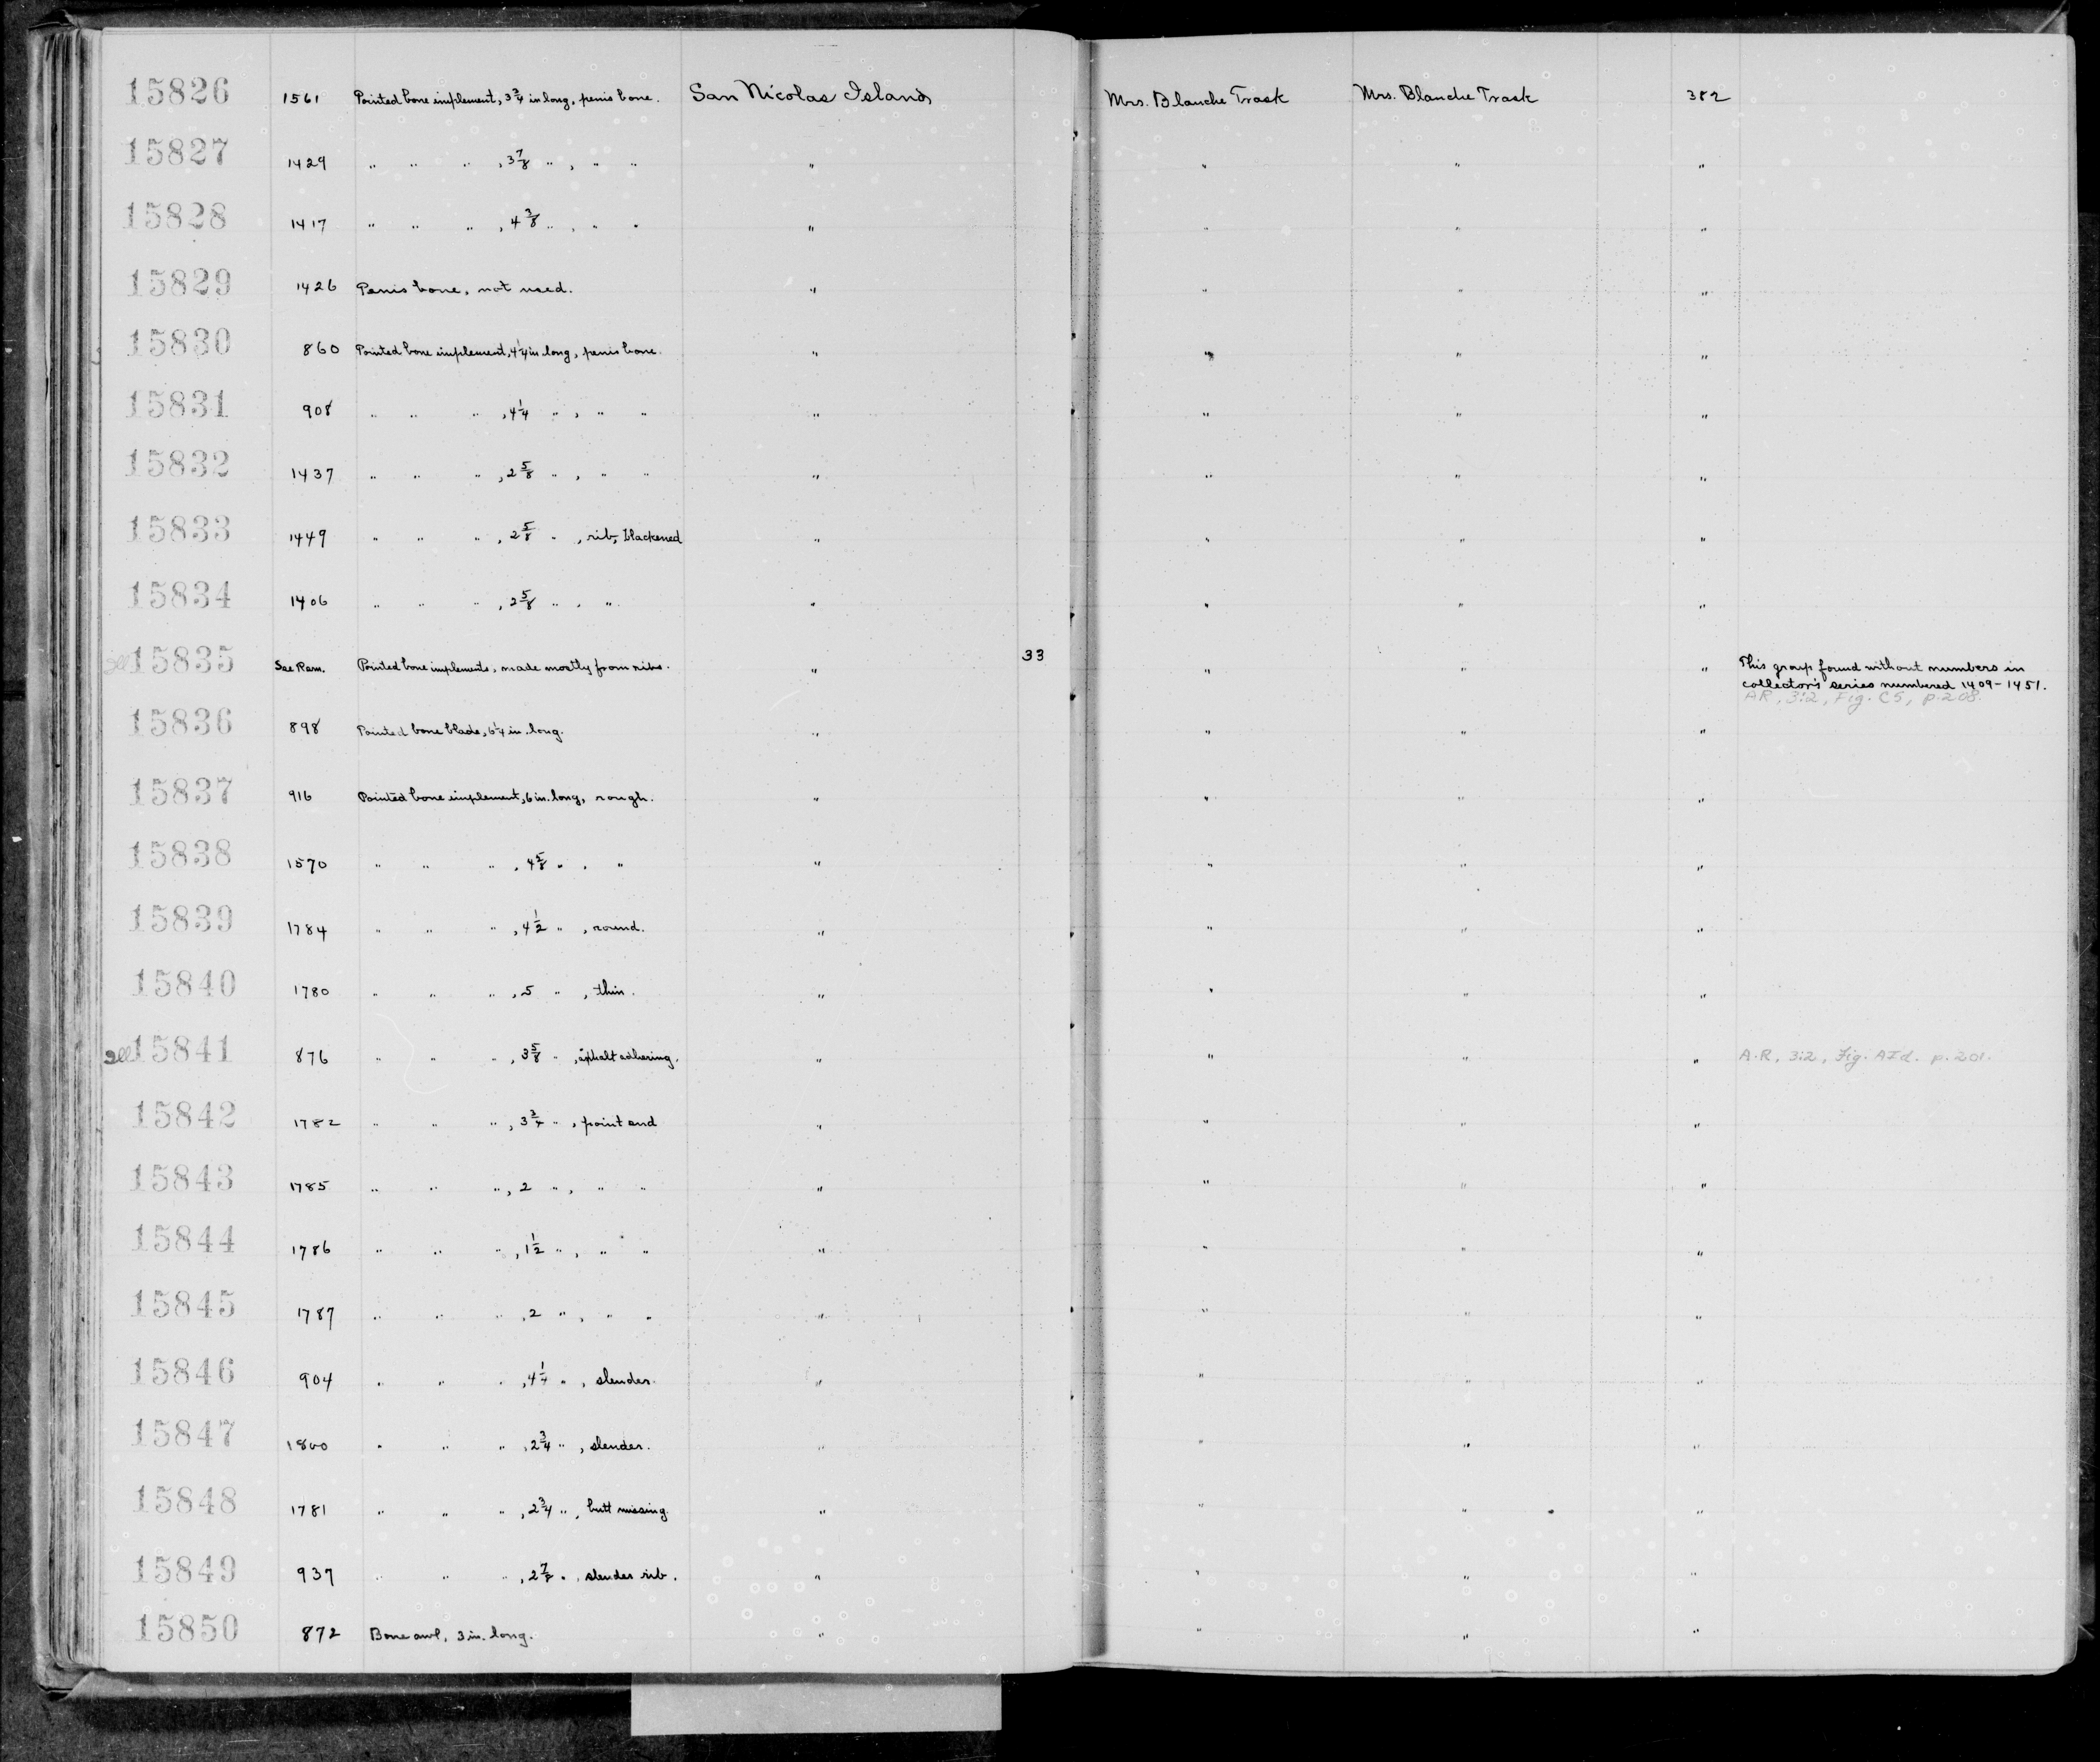 15826 1561 Pointed bone implement, 3 3/4 in long, penis bone. San Nicolas Island Mrs. Blanche Trask Mrs. Blanche Trask 382
15827 1429 " " " , 3 7/8 " , " " " " " "
15828 1417 " " " , 4 3/8 " , " " " " " "
15829 1426 Penis bone, not used. " " " "
15830 860 Pointed bone implement, 4 1/4 in long, penis bone. " " " "
15831 908 " " " , 4 1/4 " , " " " " " "
15832 1437 " " " , 2 5/8 " , " " " " " "
15833 1449 " " " , 2 5/8 " , rib, blackened " " " "
15834 1406 " " " , 2 5/8 " , " " " " "
all 15835 See Rem. Pointed bone implements, made mostly from ribs. " 33 " " " This group found without numbers in
collector's series numbered 1409-1451.
AR, 3:2, Fig. C5, p.208.
15836 898 Pointed bone blade, 6 1/4 in. long. " " " "
15837 916 Pointed bone implement, 6 in. long, rough. " " " "
15838 1570 " " " , 4 5/8 " , " " " " "
15839 1784 " " " , 4 1/2 " , round. " " " "
15840 1780 " " " , 5 " , thin. " " " "
all 15841 876 " " " , 3 5/8 " , asphalt adhering. " " " " A.R, 3:2, Fig. AId. p.201.
15842 1782 " " " , 3 3/4 " , point end " " " "
15843 1785 " " " , 2 " , " " " " " "
15844 1786 " " " , 1 1/2 " , " " " " " "
15845 1787 " " " , 2 " , " " " " " "
15846 904 " " " , 4 1/4 " , slender. " " " "
15847 1800 " " " , 2 3/4 " , slender. " " " "
15848 1781 " " " , 2 3/4 " , butt missing. " " " "
15849 937 " " " , 2 7/8 " , slender rib. " " " "
15850 872 Bone awl, 3 in. long. " " " "